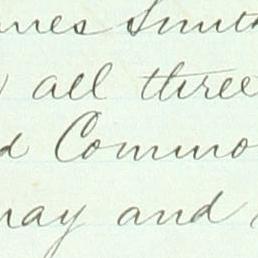 ames Smith
all three
d Commo
may and